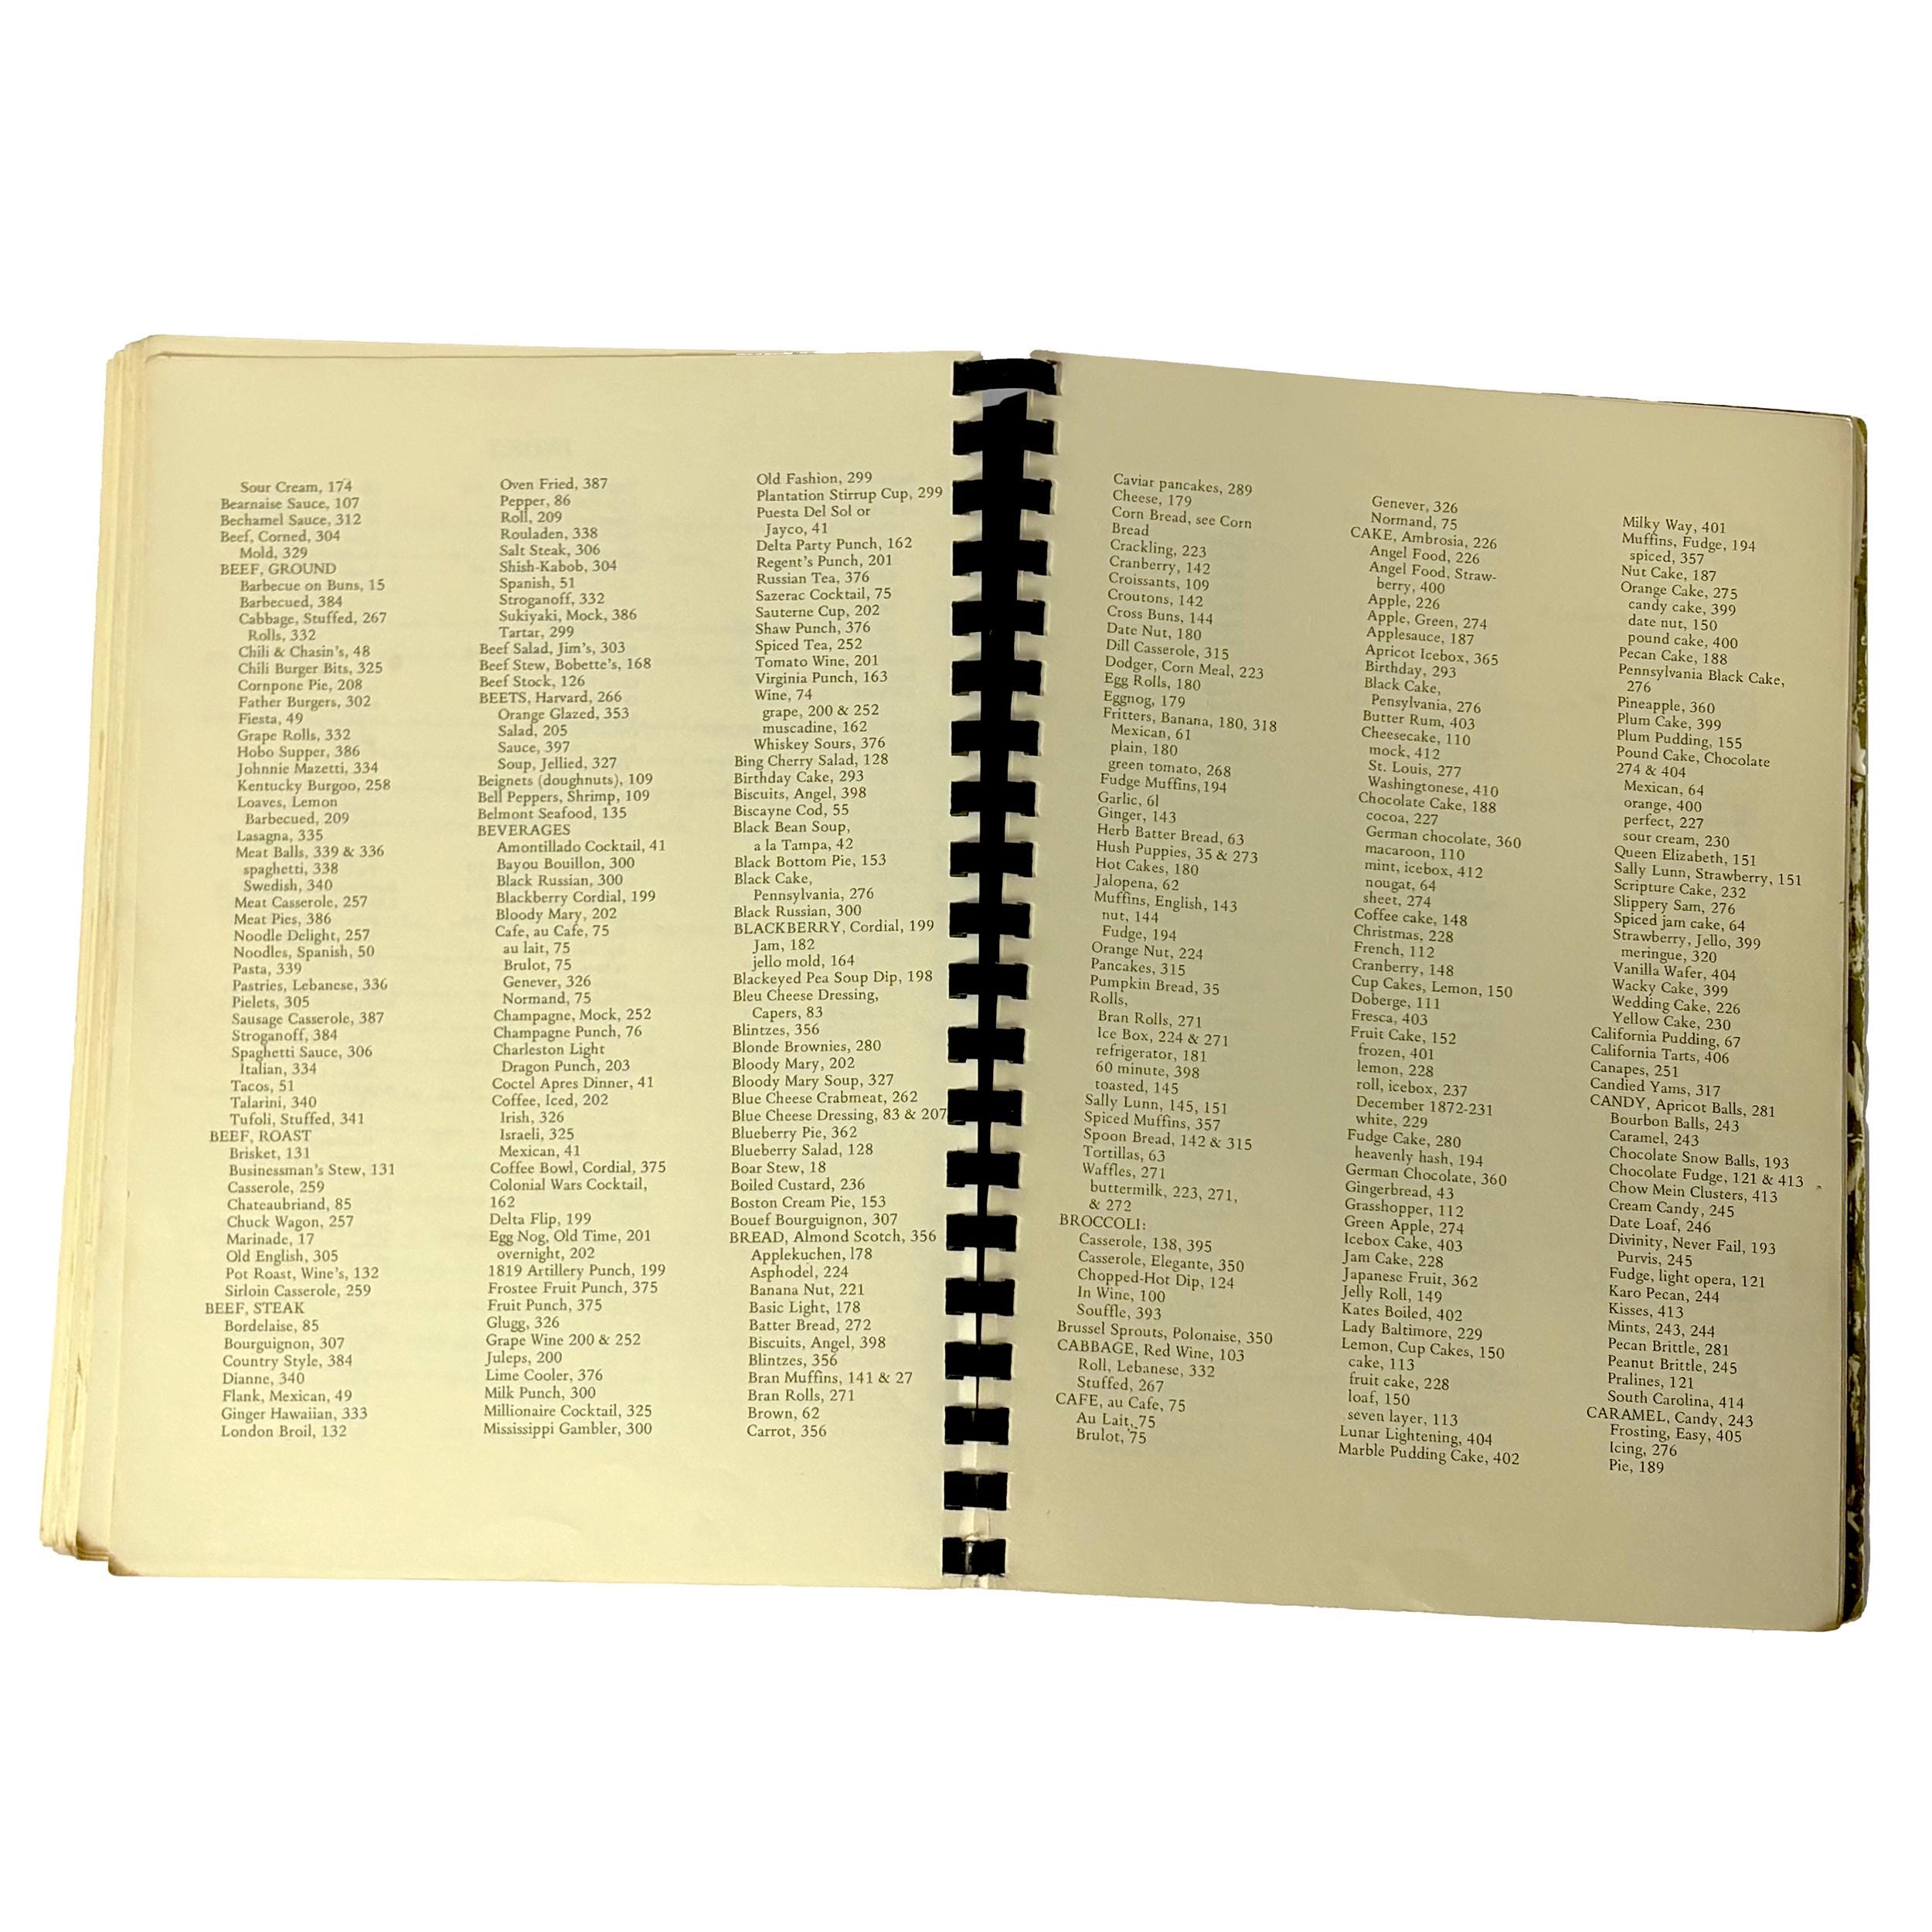 Sour Cream, 174
Bearnaise Sauce, 107
Bechamel Sauce, 312
Beef, Corned, 304
Mold, 329
BEEF, GROUND
Barbecue on Buns, 15
Barbecued, 384
Cabbage, Stuffed, 267
Rolls, 332
Chili & Chasin's, 48
Chili Burger Bits, 325
Cornpone Pie, 208
Father Burgers, 302
Fiesta, 49
Grape Rolls, 332
Hobo Supper, 386
Johnnie Mazetti, 334
Kentucky Burgoo, 258
Loaves, Lemon
Barbecued, 209
Lasagna, 335
Meat Balls, 339 & 336
spaghetti, 338
Swedish, 340
Meat Casserole, 257
Meat Pies, 386
Noodle Delight, 257
Noodles, Spanish, 50
Pasta, 339
Pastries, Lebanese, 336
Pielets, 305
Sausage Casserole, 387
Stroganoff, 384
Spaghetti Sauce, 306
Italian, 334
Tacos, 51
Talarini, 340
Tufoli, Stuffed, 341
BEEF, ROAST
Brisket, 131
Businessman's Stew, 131
Casserole, 259
Chateaubriand, 85
Chuck Wagon, 257
Marinade, 17
Old English, 305
Pot Roast, Wine's, 132
Sirloin Casserole, 259
BEEF, STEAK
Bordelaise, 85
Bourguignon, 307
Country Style, 384
Dianne, 340
Flank, Mexican, 49
Ginger Hawaiian, 333
London Broil, 132
Oven Fried, 387
Pepper, 86
Roll, 209
Rouladen, 338
Salt Steak, 306
Shish-Kabob, 304
Spanish, 51
Stroganoff, 332
Sukiyaki, Mock, 386
Tartar, 299
Beef Salad, Jim's, 303
Beef Stew, Bobette's, 168
Beef Stock, 126
BEETS, Harvard, 266
Orange Glazed, 353
Salad, 205
Sauce, 397
Soup, Jellied, 327
Beignets (doughnuts), 109
Bell Peppers, Shrimp, 109
Belmont Seafood, 135
BEVERAGES
Amontillado Cocktail, 41
Bayou Bouillon, 300
Black Russian, 300
Blackberry Cordial, 199
Bloody Mary, 202
Cafe, au Cafe, 75
au lait, 75
Brulot, 75
Genever, 326
Normand, 75
Champagne, Mock, 252
Champagne Punch, 76
Charleston Light
Dragon Punch, 203
Coctel Apres Dinner, 41
Coffee, Iced, 202
Irish, 326
Israeli, 325
Mexican, 41
Coffee Bowl, Cordial, 375
Colonial Wars Cocktail,
162
Delta Flip, 199
Egg Nog, Old Time, 201
overnight, 202
1819 Artillery Punch, 199
Frostee Fruit Punch, 375
Fruit Punch, 375
Glugg, 326
Grape Wine 200 & 252
Juleps, 200
Lime Cooler, 376
Milk Punch, 300
Millionaire Cocktail, 325
Mississippi Gambler, 300
Old Fashion, 299
Plantation Stirrup Cup, 299
Puesta Del Sol or
Jayco, 41
Delta Party Punch, 162
Regent's Punch, 201
Russian Tea, 376
Sazerac Cocktail, 75
Sauterne Cup, 202
Shaw Punch, 376
Spiced Tea, 252
Tomato Wine, 201
Virginia Punch, 163
Wine, 74
grape, 200 & 252
muscadine, 162
Whiskey Sours, 376
Bing Cherry Salad, 128
Birthday Cake, 293
Biscuits, Angel, 398
Biscayne Cod, 55
Black Bean Soup,
a la Tampa, 42
Black Bottom Pie, 153
Black Cake,
Pennsylvania, 276
Black Russian, 300
BLACKBERRY, Cordial, 199
Jam, 182
jello mold, 164
Blackeyed Pea Soup Dip, 198
Bleu Cheese Dressing,
Capers, 83
Blintzes, 356
Blonde Brownies, 280
Bloody Mary, 202
Bloody Mary Soup, 327
Blue Cheese Crabmeat, 262
Blue Cheese Dressing, 83 & 207
Blueberry Pie, 362
Blueberry Salad, 128
Boar Stew, 18
Boiled Custard, 236
Boston Cream Pie, 153
Bouef Bourguignon, 307
BREAD, Almond Scotch, 356
Applekuchen, l78
Asphodel, 224
Banana Nut, 221
Basic Light, 178
Batter Bread, 272
Biscuits, Angel, 398
Blintzes, 356
Bran Muffins, 141 & 27
Bran Rolls, 271
Brown, 62
Carrot, 356
Caviar pancakes, 289
Cheese, 179
Corn Bread, see Corn
Bread
Crackling, 223
Cranberry, 142
Croissants, 109
Croutons, 142
Cross Buns, 144
Date Nut, 180
Dill Casserole, 315
Dodger, Corn Meal, 223
Egg Rolls, 180
Eggnog, 179
Fritters, Banana, 180, 318
Mexican, 61
plain, 180
green tomato, 268
Fudge Muffins, 194
Garlic, 6l
Ginger, 143
Herb Batter Bread, 63
Hush Puppies, 35 & 273
Hot Cakes, 180
Jalopena, 62
Muffins, English, 143
nut, 144
Fudge, 194
Orange Nut, 224
Pancakes, 315
Pumpkin Bread, 35
Rolls,
Bran Rolls, 271
Ice Box, 224 & 271
refrigerator, 181
60 minute, 398
toasted, 145
Sally Lunn, 145, 151
Spiced Muffins, 357
Spoon Bread, 142 & 315
Tortillas, 63
Waffles, 271
buttermilk, 223, 271,
& 272
BROCCOLI:
Casserole, 138, 395
Casserole, Elegante, 350
Chopped-Hot Dip, 124
In Wine, 100
Souffle, 393
Brussel Sprouts, Polonaise, 350
CABBAGE, Red Wine, 103
Roll, Lebanese, 332
Stuffed, 267
CAFE, au Cafe, 75
Au Lait, 75
Brulot, 75
Genever, 326
Normand, 75
CAKE, Ambrosia, 226
Angel Food, 226
Angel Food, Straw-
berry, 400
Apple, 226
Apple, Green, 274
Applesauce, 187
Apricot Icebox, 365
Birthday, 293
Black Cake,
Pensylvania, 276
Butter Rum, 403
Cheesecake, 110
mock, 412
St. Louis, 277
Washingtonese, 410
Chocolate Cake, 188
cocoa, 227
German chocolate, 360
macaroon, 110
mint, icebox, 412
nougat, 64
sheet, 274
Coffee cake, 148
Christmas, 228
French, 112
Cranberry, 148
Cup Cakes, Lemon, 150
Doberge, 111
Fresca, 403
Fruit Cake, 152
frozen, 401
lemon, 228
roll, icebox, 237
December 1872-231
white, 229
Fudge Cake, 280
heavenly hash, 194
German Chocolate, 360
Gingerbread, 43
Grasshopper, 112
Green Apple, 274
Icebox Cake, 403
Jam Cake, 228
Japanese Fruit, 362
Jelly Roll, 149
Kates Boiled, 402
Lady Baltimore, 229
Lemon, Cup Cakes, 150
cake, 113
fruit cake, 228
loaf, 150
seven layer, 113
Lunar Lightening, 404
Marble Pudding Cake, 402
Milky Way, 401
Muffins, Fudge, 194
spiced, 357
Nut Cake, 187
Orange Cake, 275
candy cake, 399
date nut, 150
pound cake, 400
Pecan Cake, 188
Pennsylvania Black Cake,
276
Pineapple, 360
Plum Cake, 399
Plum Pudding, 155
Pound Cake, Chocolate
274 & 404
Mexican, 64
orange, 400
perfect, 227
sour cream, 230
Queen Elizabeth, 151
Sally Lunn, Strawberry, 151
Scripture Cake, 232
Slippery Sam, 276
Spiced jam cake, 64
Strawberry, Jello, 399
meringue, 320
Vanilla Wafer, 404
Wacky Cake, 399
Wedding Cake, 226
Yellow Cake, 230
California Pudding, 67
California Tarts, 406
Canapes, 251
Candied Yams, 317
CANDY, Apricot Balls, 281
Bourbon Balls, 243
Caramel, 243
Chocolate Snow Balls, 193
Chocolate Fudge, 121 & 413
Chow Mein Clusters, 413
Cream Candy, 245
Date Loaf, 246
Divinity, Never Fail, 193
Purvis, 245
Fudge, light opera, 121
Karo Pecan, 244
Kisses, 413
Mints, 243, 244
Pecan Brittle, 281
Peanut Brittle, 245
Pralines, 121
South Carolina, 414
CARAMEL, Candy, 243
Frosting, Easy, 405
Icing, 276
Pie, 189